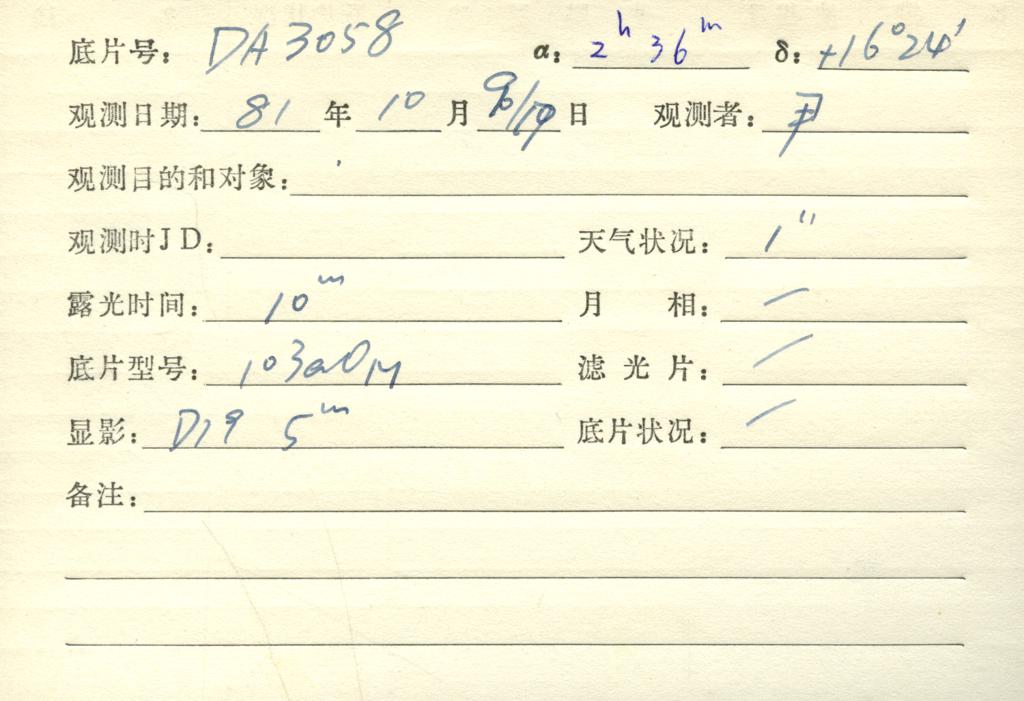 底片号： DA3058 α： 2ʰ 36ᵐ δ： +16°24′
观测日期： 81 年 10 月 日 观测者： 尹
观测目的和对象：
观测时JD： 天气状况： 1″
露光时间： 10ᵐ 月 相： —
底片型号： 103aO 滤 光 片： —
显影： D19 5ᵐ 底片状况： —
备注：